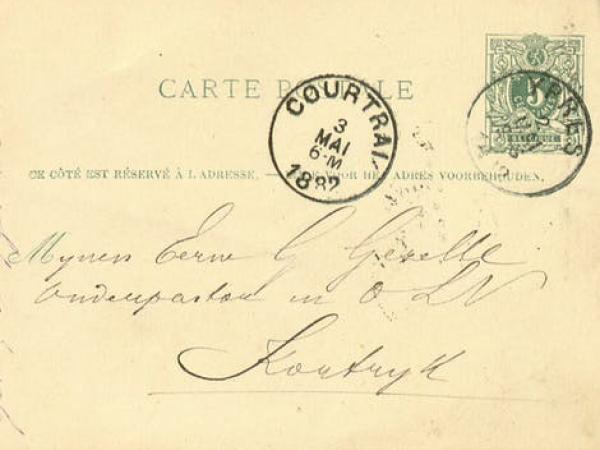 CARTE POSTALE
COURTRAI
3
MAI
6-M
1882
YPRES
5
BELGIQUE
CE CÔTÉ EST RÉSERVÉ À L'ADRESSE. — VOOR HET ADRES VOORBEHOUDEN.
Mynen Eerw G Gezelle
Onderpastoor in O L V
Kortryk